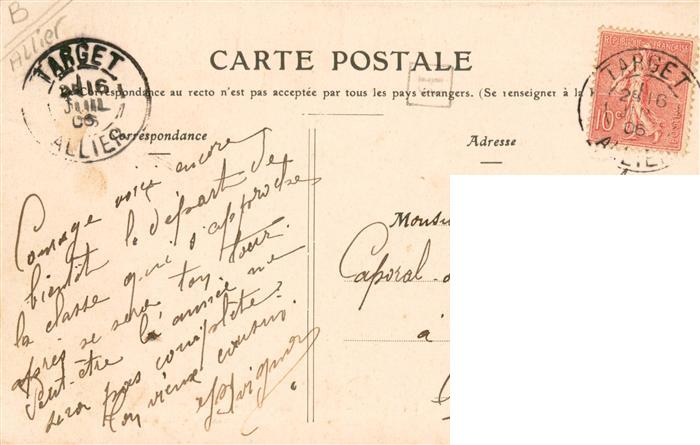 B
Allier
TARGET
2E 16
JUIL
06
ALLIER
CARTE POSTALE
La Correspondance au recto n'est pas acceptée par tous les pays étrangers. (Se renseigner à la
RÉPUBLIQUE FRANÇAISE
10c
TARGET
2E 16
06
ALLIER
Correspondance
Adresse
Courage voici encore
bientôt le départ de
la classe qui s'approche
après se sera ton tour.
Peut-être la année ne
sera pas complète
Ton vieux cousin
Monsi
Caporal
à